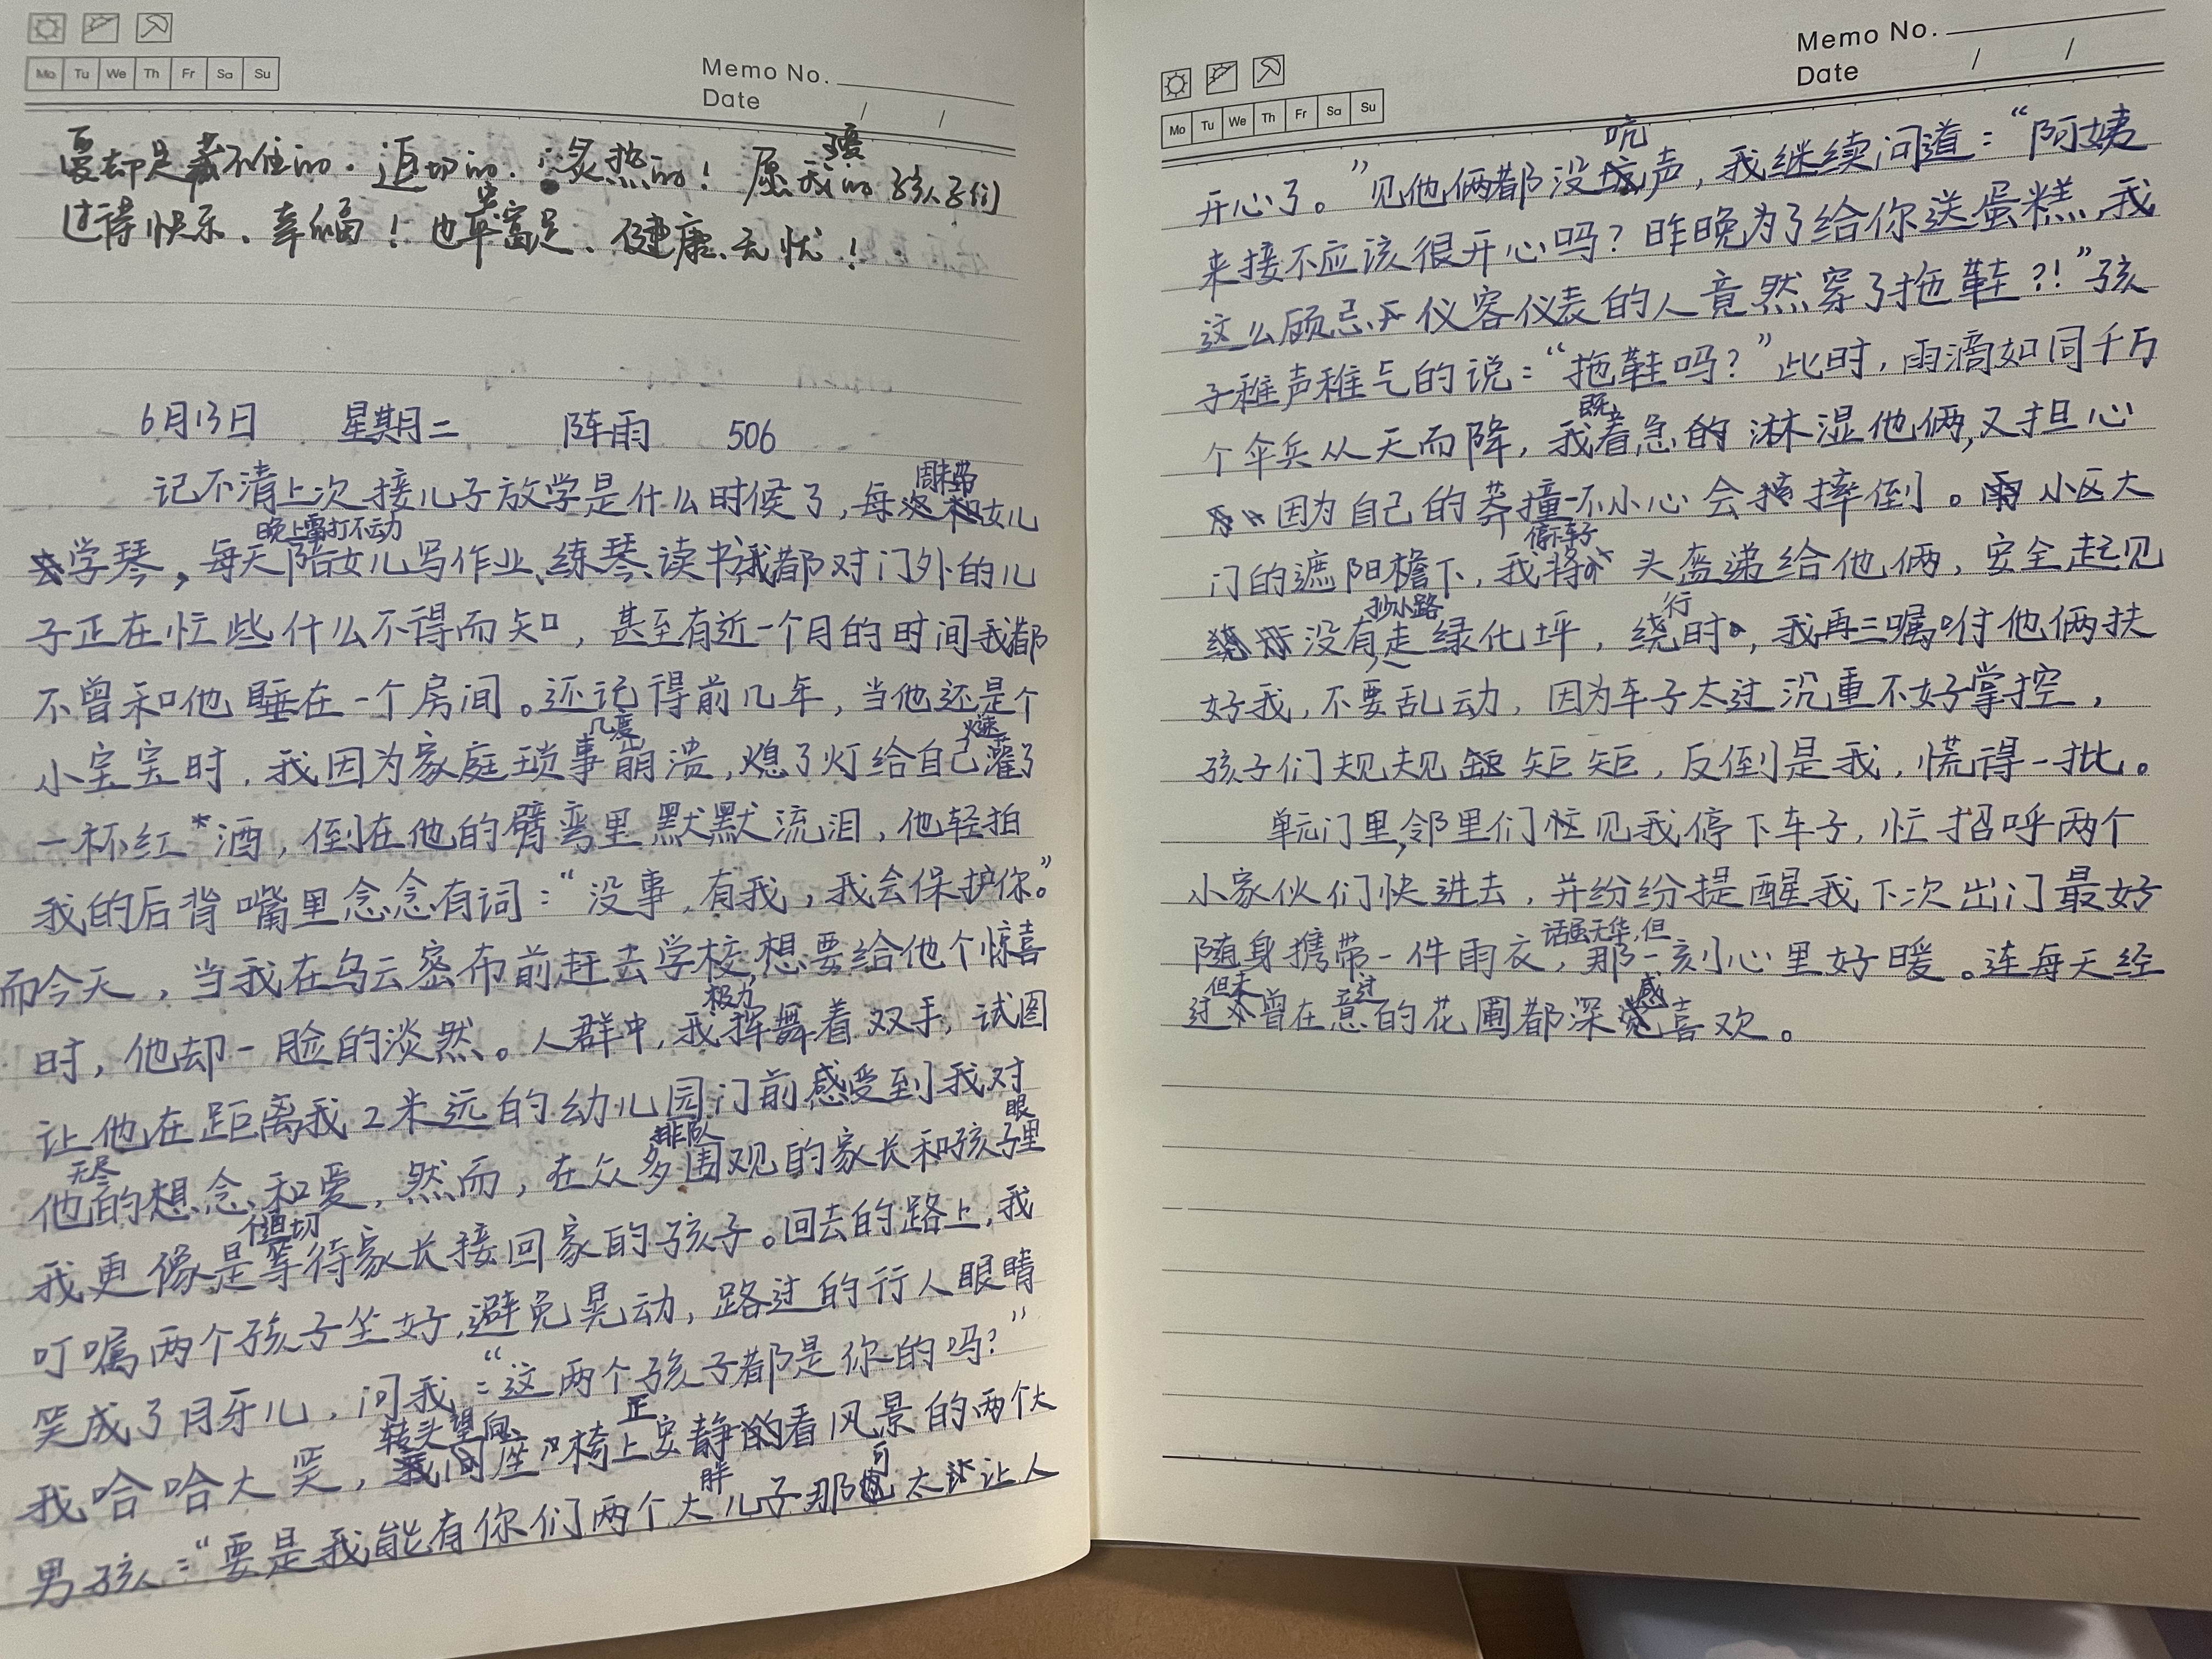 Mo Tu We Th Fr Sa Su
Memo No.
Date / /
爱却是藏不住的．迫切的．炙热的！愿我爱的孩子们
过得快乐、幸福！也富足、健康、无忧！
6月13日 星期二 阵雨 506
记不清上次接儿子放学是什么时候了，每周末带女儿
学琴，每天晚上雷打不动陪女儿写作业、练琴、读书，我都对门外的儿
子正在忙些什么不得而知，甚至有近一个月的时间我都
不曾和他睡在一个房间。还记得前几年，当他还是个
小宝宝时，我因为家庭琐事几度崩溃，熄了灯给自己火速灌了
一杯红*酒，倒在他的臂弯里默默流泪，他轻拍
我的后背嘴里念念有词：“没事，有我，我会保护你。”
而今天，当我在乌云密布前赶去学校，想要给他个惊喜
时，他却一脸的淡然。人群中，我极力挥舞着双手，试图
让他在距离我2米远的幼儿园门前感受到我对
他无尽的想念和爱，然而，在众多排队围观的家长和孩子眼里
我更像是个迫切等待家长接回家的孩子。回去的路上，我
叮嘱两个孩子坐好，避免晃动，路过的行人眼睛
笑成了月牙儿，问我：“这两个孩子都是你的吗？”
我哈哈大笑，转头望向座椅上正安静的看风景的两个大
男孩：“要是我能有你们两个大胖儿子那可太让人
Mo Tu We Th Fr Sa Su
Memo No.
Date / /
开心了。”见他俩都没吭声，我继续问道：“阿姨
来接不应该很开心吗？昨晚为了给你送蛋糕，我
这么顾忌仪容仪表的人竟然穿了拖鞋？！”孩
子稚声稚气的说：“拖鞋吗？”此时，雨滴如同千万
个伞兵从天而降，我既着急的淋湿他俩，又担心
因为自己的莽撞一不小心会摔倒。小区大
门的遮阳檐下，我停下车子将头盔递给他俩，安全起见
没有抄小路走绿化坪，绕行时，我再三嘱咐他俩扶
好我，不要乱动，因为车子太过沉重不好掌控，
孩子们规规矩矩，反倒是我，慌得一批。
单元门里，邻里们忙见我停下车子，忙招呼两个
小家伙们快进去，并纷纷提醒我下次出门最好
随身携带一件雨衣，话虽无华，但那一刻心里好暖。连每天经
过但未曾在意过的花圃都深感喜欢。